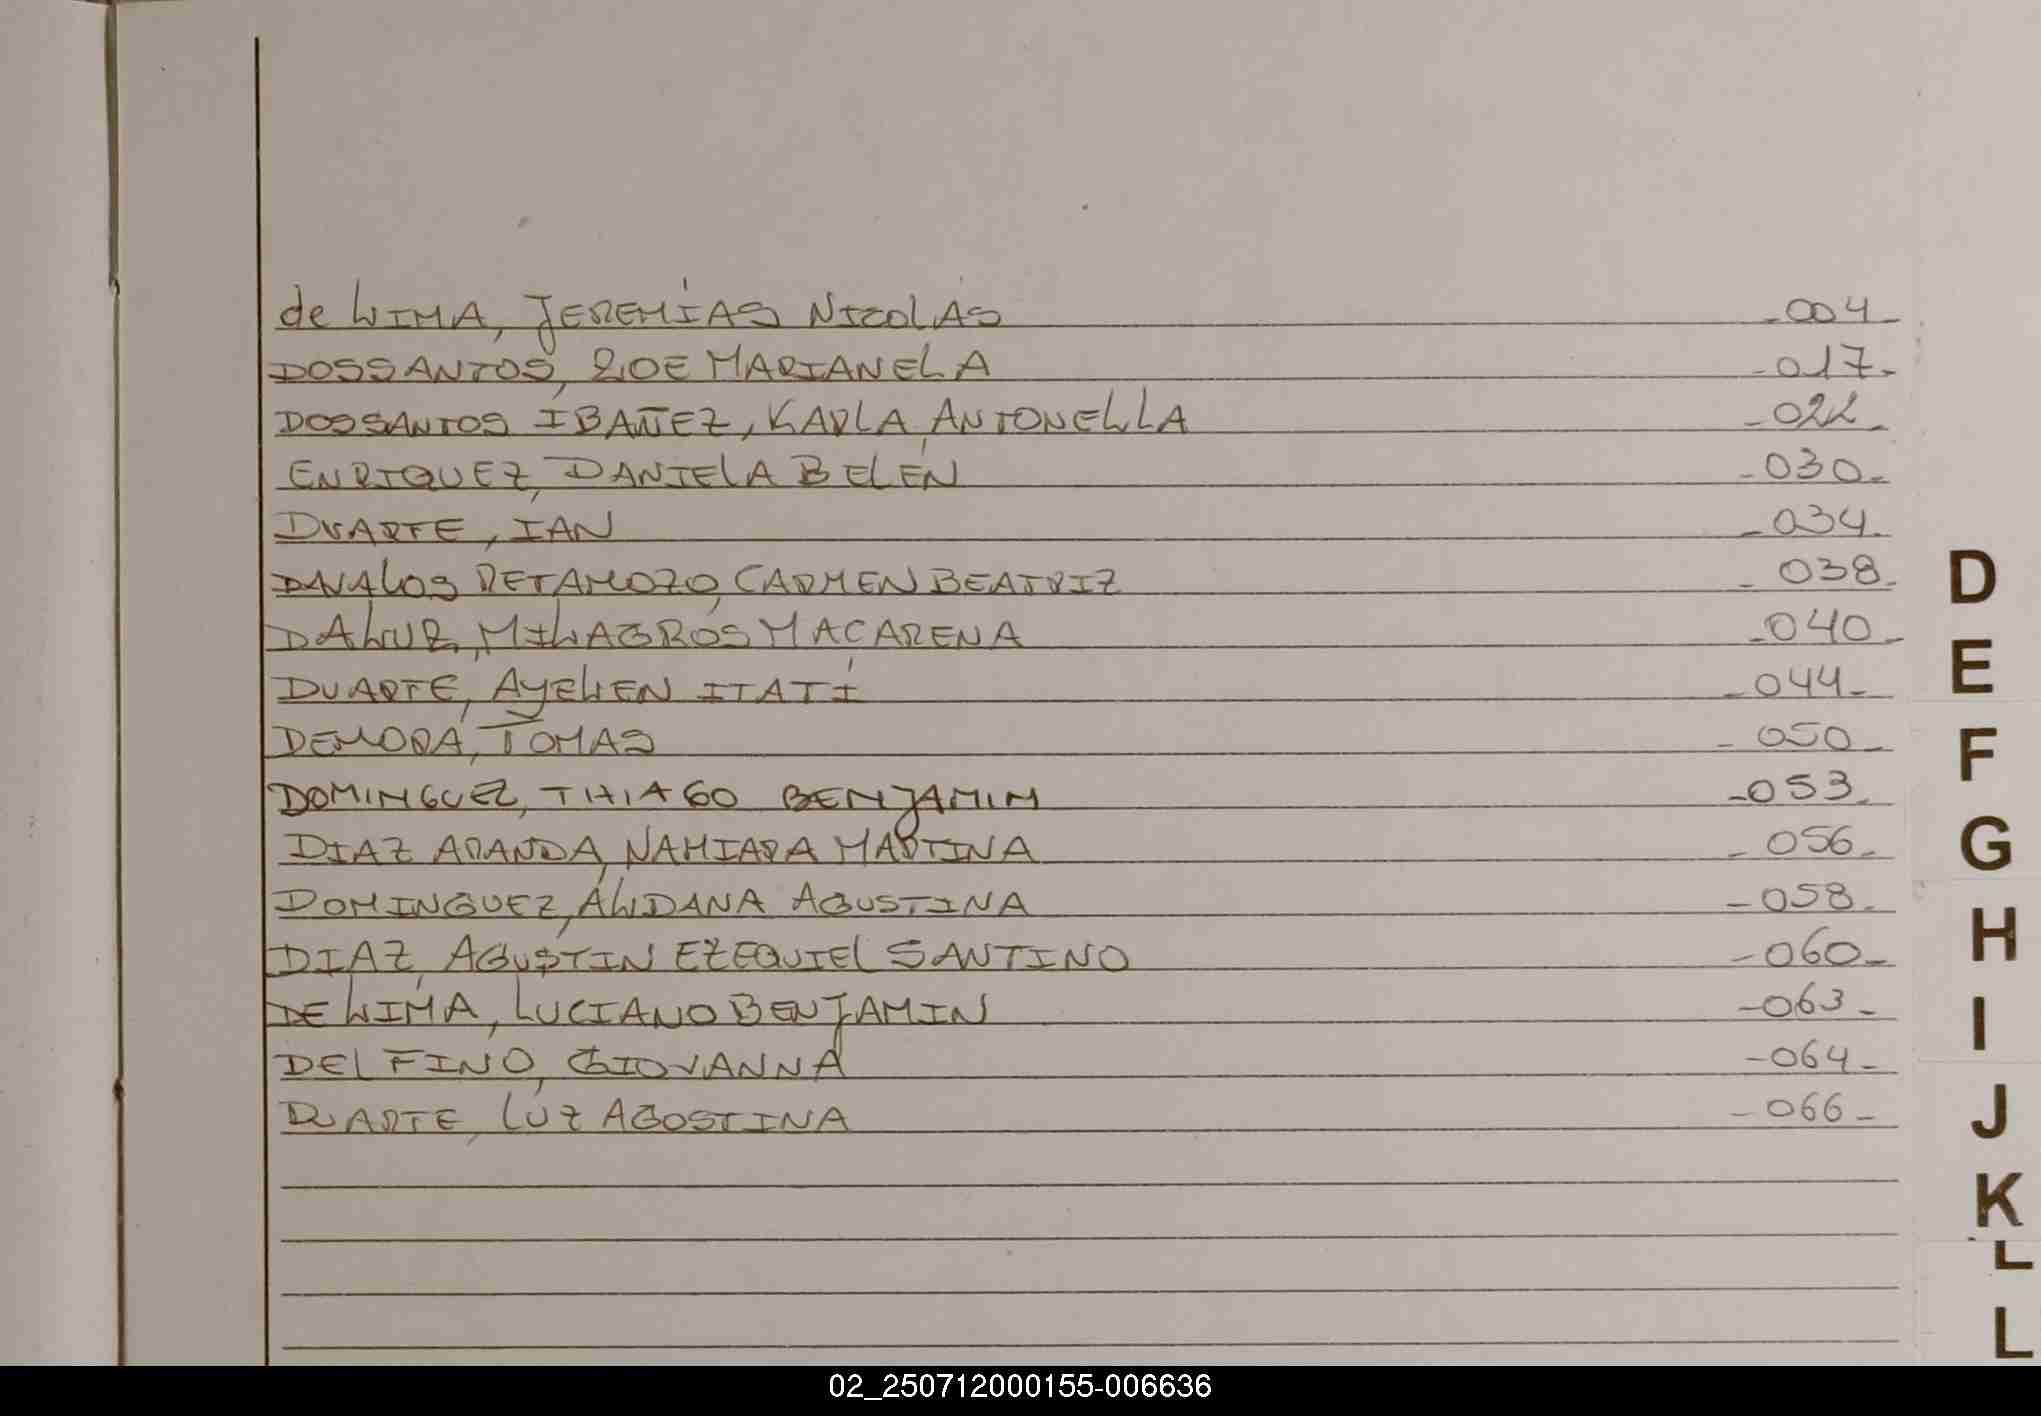 de LIMA, JEREMÍAS NICOLÁS -004-
DOSSANTOS, ZOE MARIANELA -017-
DOSSANTOS IBAÑEZ, KARLA ANTONELLA -022-
ENRIQUEZ, DANIELA BELÉN -030-
DUARTE, IAN -034-
DAVALOS RETAMOZO, CARMEN BEATRIZ -038-
DALUZ, MILAGROS MACARENA -040-
DUARTE, AYELEN ITATÍ -044-
DEMORA, TOMAS -050-
DOMINGUEZ, THIAGO BENJAMIN -053-
DIAZ ARANDA, NAHIARA MARTINA -056-
DOMINGUEZ, ALDANA AGUSTINA -058-
DIAZ, AGUSTIN EZEQUIEL SANTINO -060-
DE LIMA, LUCIANO BENJAMIN -063-
DELFINO, GIOVANNA -064-
DUARTE, LUZ AGOSTINA -066-
D
E
F
G
H
I
J
K
L
L
02_250712000155-006636